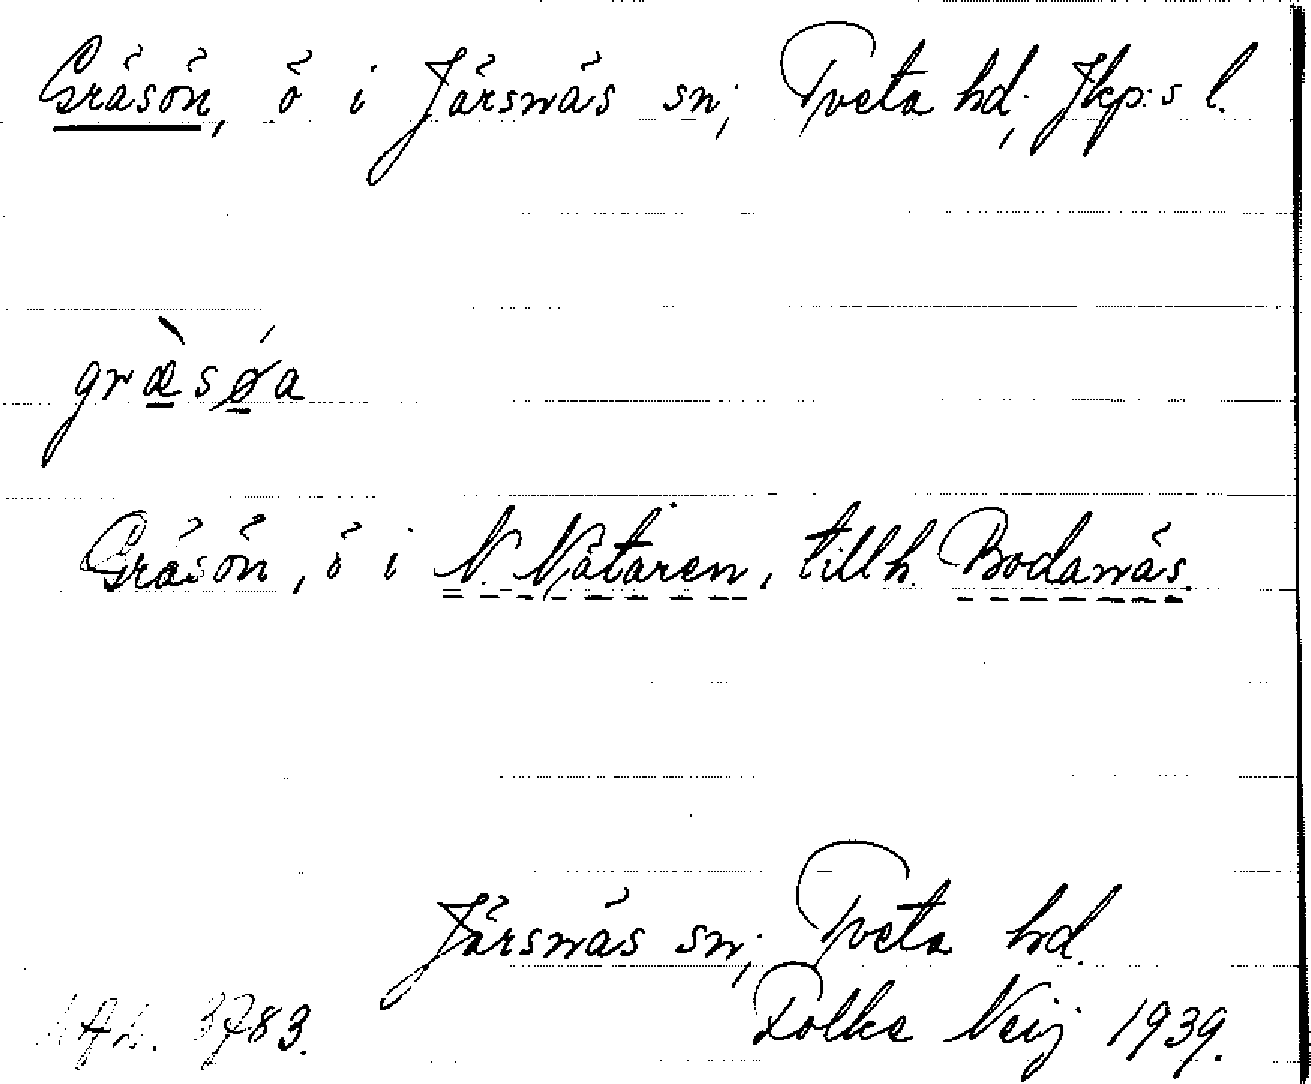 Gräsön, ö i Järsnäs sn; Tveta hd; Jkp:s l.
græ̀sǿa
Gräsön, ö i N. Nätaren, tillh. Bodanäs.
Järsnäs sn; Tveta hd.
3783. Folke Neij 1939.